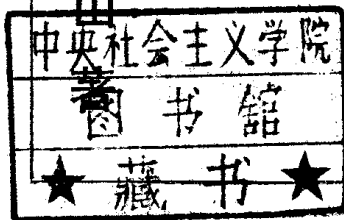 中央社会主义学院
著
图书馆
★藏书★